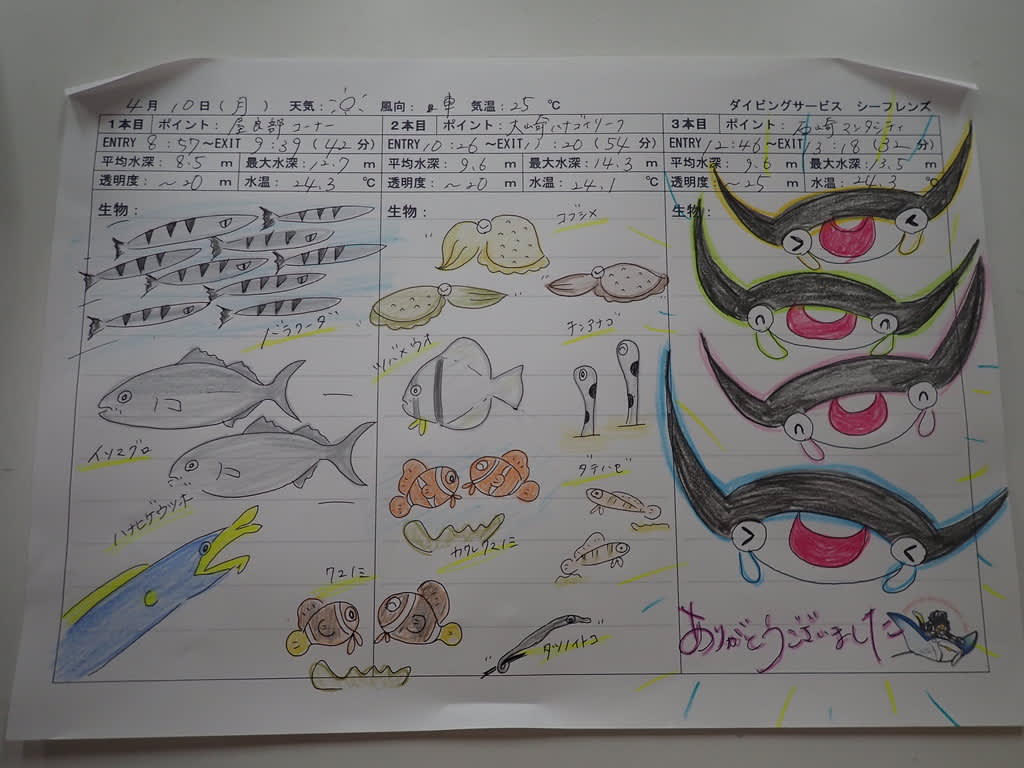 4月10日(月) 天気: 風向: 東 気温: 25 ℃ ダイビングサービス シーフレンズ
1本目 ポイント: 屋良部コーナー 2本目 ポイント: 大崎ハナゴイリーフ 3本目 ポイント: 石崎マンタシティ
ENTRY 8:57～EXIT 9:39 (42分) ENTRY 10:26～EXIT 11:20 (54分) ENTRY 12:46～EXIT 13:18 (32分)
平均水深: 8.5 m 最大水深: 12.7 m 平均水深: 9.6 m 最大水深: 14.3 m 平均水深: 9.6 m 最大水深: 13.5 m
透明度: ～20 m 水温: 24.3 ℃ 透明度: ～20 m 水温: 24.1 ℃ 透明度: ～25 m 水温: 24.3 ℃
生物: 生物: 生物:
バラクーダ
イソマグロ
ハナヒゲウツボ
クマノミ
コブシメ
ツバメウオ
チンアナゴ
ダテハゼ
カクレクマノミ
タツノイトコ
ありがとうございました